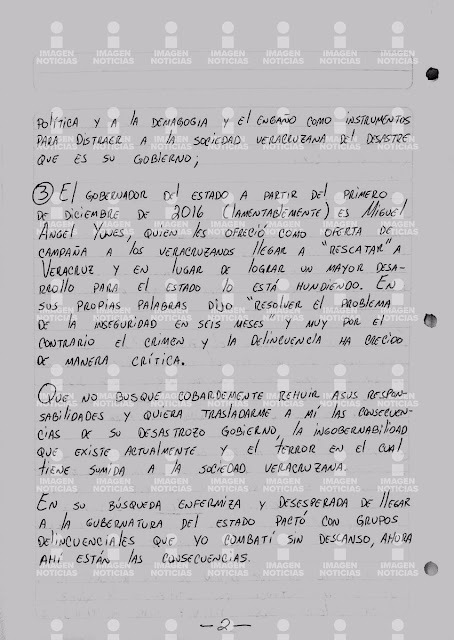 POLÍTICA Y A LA DEMAGOGIA Y EL ENGAÑO COMO INSTRUMENTOS
PARA DISTRAER A LA SOCIEDAD VERACRUZANA DEL DESASTRE
QUE ES SU GOBIERNO;
③ EL GOBERNADOR DEL ESTADO A PARTIR DEL PRIMERO
DE DICIEMBRE DE 2016 (LAMENTABLEMENTE) ES MIGUEL
ANGEL YUNES, QUIEN LES OFRECIÓ COMO OFERTA DE
CAMPAÑA A LOS VERACRUZANOS LLEGAR A "RESCATAR" A
VERACRUZ Y EN LUGAR DE LOGRAR UN MAYOR DESA-
RROLLO PARA EL ESTADO LO ESTÁ HUNDIENDO. EN
SUS PROPIAS PALABRAS DIJO "RESOLVER EL PROBLEMA
DE LA INSEGURIDAD EN SEIS MESES" Y MUY POR EL
CONTRARIO EL CRIMEN Y LA DELINCUENCIA HA CRECIDO
DE MANERA CRÍTICA.
QUE NO BUSQUE COBARDEMENTE REHUIR A SUS RESPON-
SABILIDADES Y QUIERA TRASLADARME A MÍ LAS CONSECUEN-
CIAS DE SU DESASTROZO GOBIERNO, LA INGOBERNABILIDAD
QUE EXISTE ACTUALMENTE Y EL TERROR EN EL CUAL
TIENE SUMIDA A LA SOCIEDAD VERACRUZANA.
EN SU BÚSQUEDA ENFERMIZA Y DESESPERADA DE LLEGAR
A LA GUBERNATURA DEL ESTADO PACTÓ CON GRUPOS
DELINCUENCIALES QUE YO COMBATÍ SIN DESCANSO, AHORA
AHÍ ESTÁN LAS CONSECUENCIAS.
- 2 -
IMAGEN
NOTICIAS